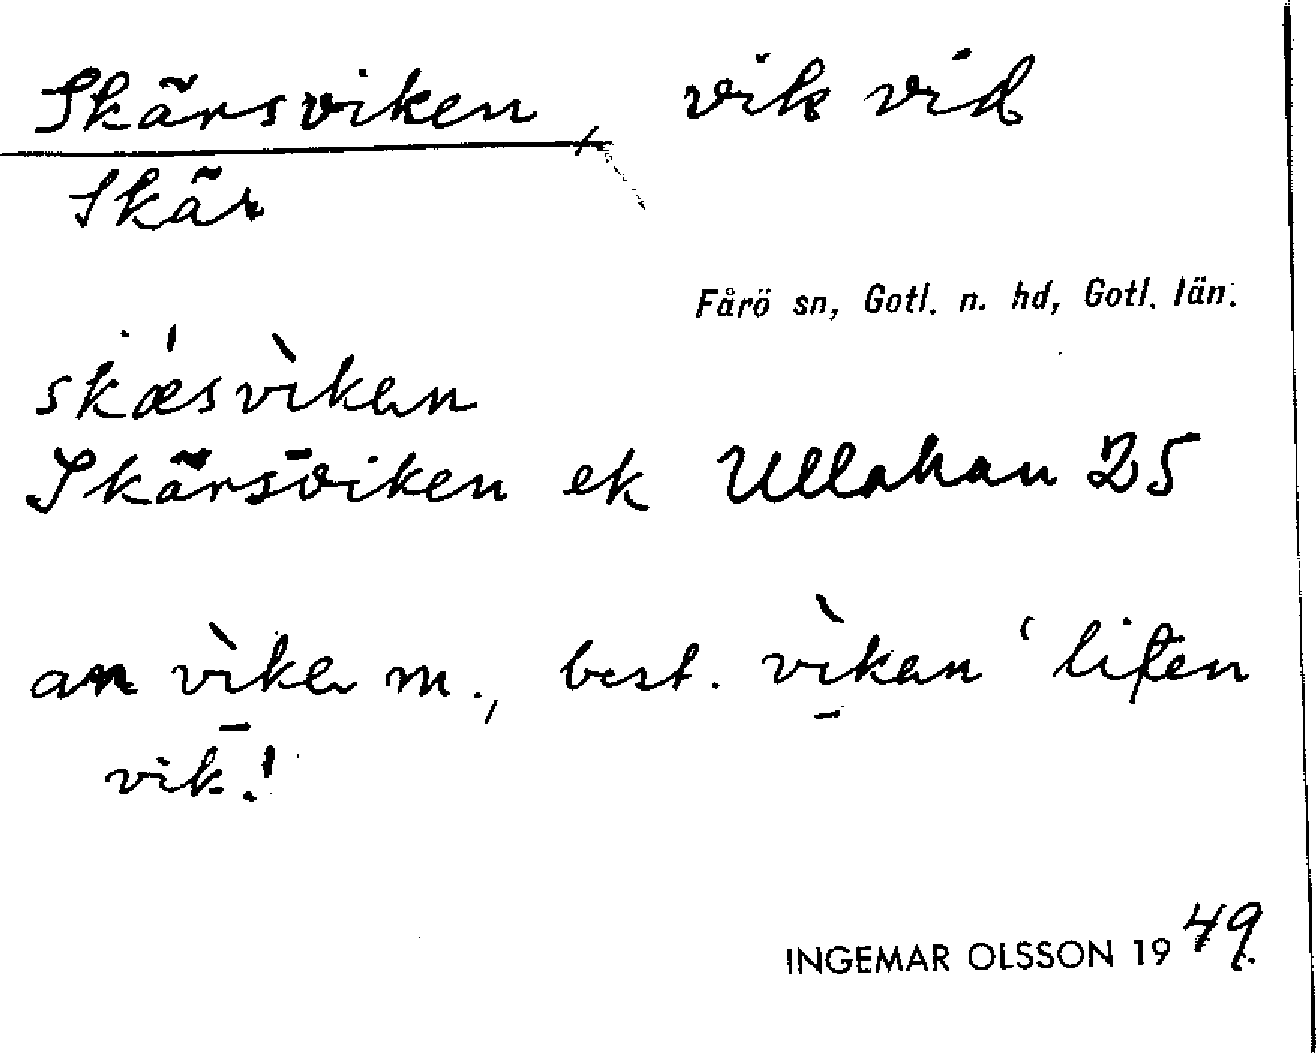 Skärsviken, vik vid
Skär
Fårö sn, Gotl. n. hd, Gotl. län.
skǽsvìkan
Skärsviken ek Ullahau 25
an vìka m., best. vìkan 'liten
vik!'
INGEMAR OLSSON 1949.